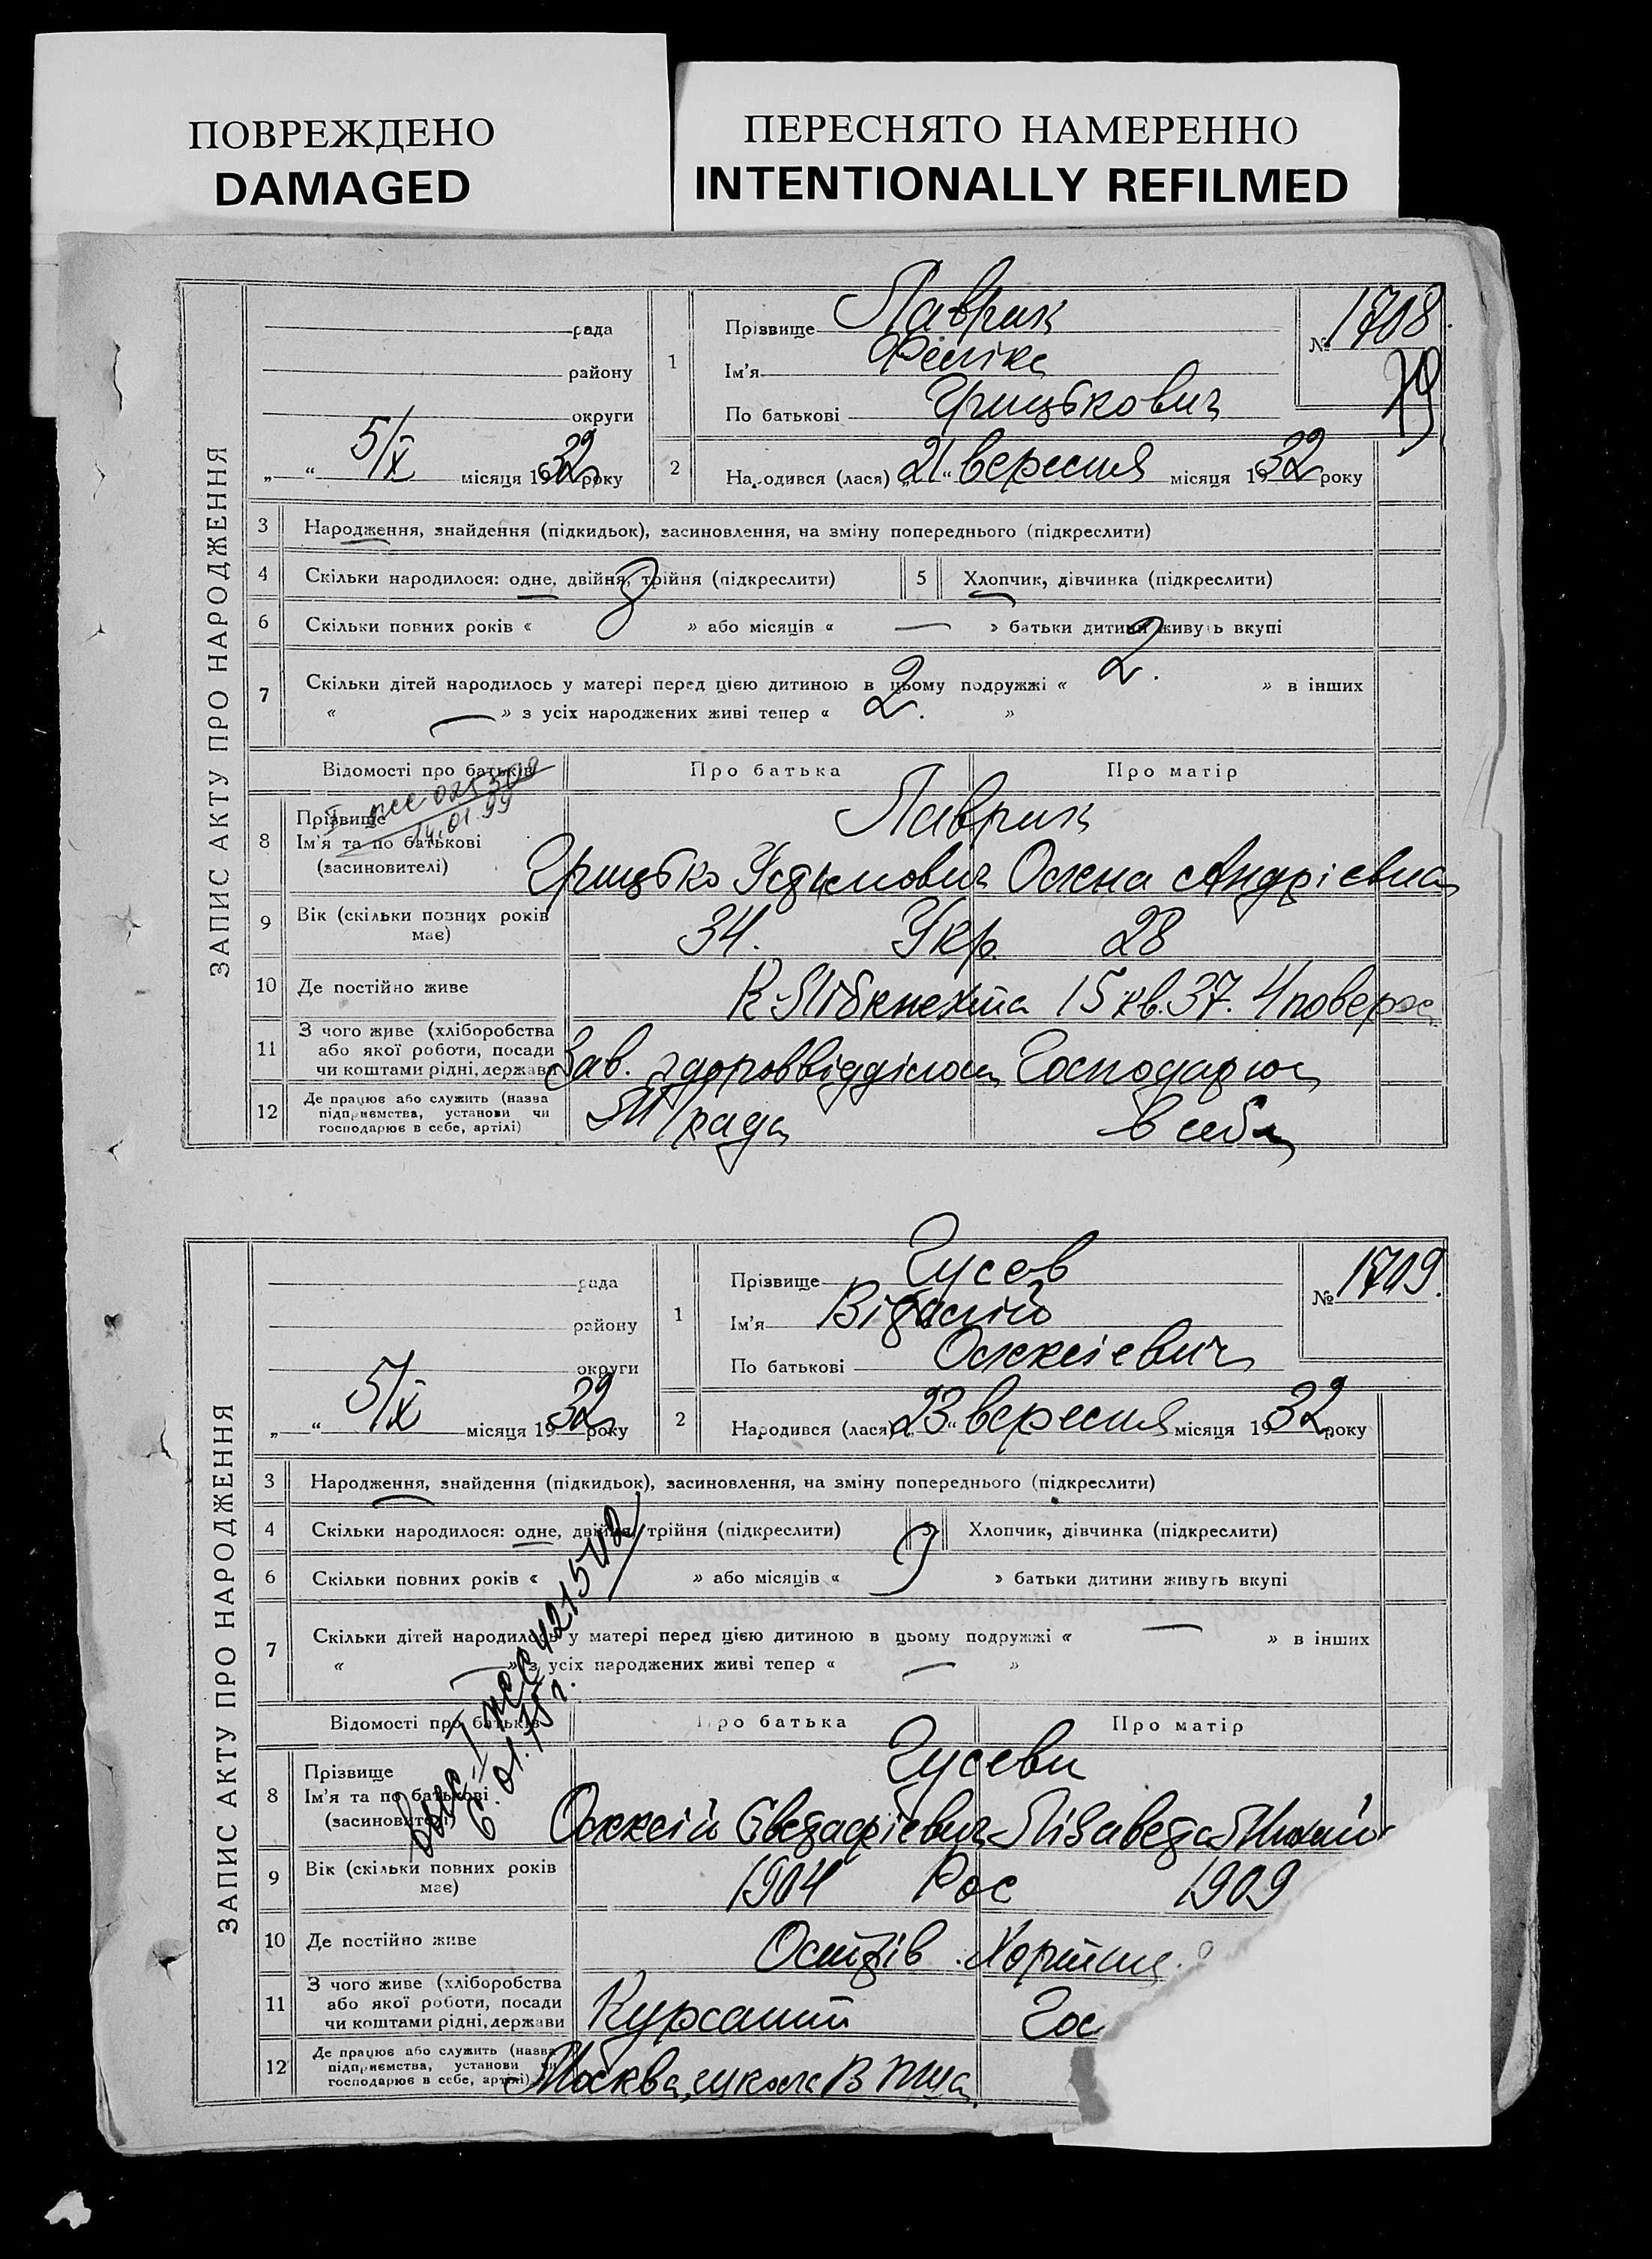 ПОВРЕЖДЕНО
DAMAGED
ПЕРЕСНЯТО НАМЕРЕННО
INTENTIONALLY REFILMED
ЗАПИС АКТУ ПРО НАРОДЖЕННЯ
рада
району
округи
„ “ 5/X місяця 1932 року
1
Прізвище Лаврик
Ім'я Фелікс
По батькові Грицькович
№ 1708.
79
2
Народився (лася) „21“ вересня місяця 1932 року
3 Народження, знайдення (підкидьок), засиновлення, на зміну попереднього (підкреслити)
4 Скільки народилося: одне, двійня, трійня (підкреслити)
5 Хлопчик, дівчинка (підкреслити)
6 Скільки повних років « » або місяців « — » батьки дитини живуть вкупі
7 Скільки дітей народилось у матері перед цією дитиною в цьому подружжі « 2. » в інших
« — » з усіх народжених живі тепер « 2. »
Відомості про батьків Про батька Про матір
14.01.99
8 Прізвище
Ім'я та по батькові
(засиновителі)
Лаврик
Грицько Устимович Олена Андрієвна
9 Вік (скільки повних років
має)
34. Укр. 28
10 Де постійно живе
К. Лібкнехта 15 кв. 37. 4 поверх
11 З чого живе (хліборобства
або якої роботи, посади
чи коштами рідні, держави
Зав. здороввідділом Господарює
12 Де працює або служить (назва
підприємства, установи чи
господарює в себе, артілі)
М/рада в себе
ЗАПИС АКТУ ПРО НАРОДЖЕННЯ
рада
району
округи
„ “ 5/X місяця 1932 року
1
Прізвище Гусев
Ім'я Віталій
По батькові Олексієвич
№ 1709.
2
Народився (лася) „23“ вересня місяця 1932 року
3 Народження, знайдення (підкидьок), засиновлення, на зміну попереднього (підкреслити)
4 Скільки народилося: одне, двійня, трійня (підкреслити)
5 Хлопчик, дівчинка (підкреслити)
6 Скільки повних років « » або місяців « » батьки дитини живуть вкупі
7 Скільки дітей народилось у матері перед цією дитиною в цьому подружжі « — » в інших
« — » з усіх народжених живі тепер « — »
Відомості про батьків Про батька Про матір
6.01.75 г.
8 Прізвище
Ім'я та по батькові
(засиновителі)
Гусеви
Олексій Євстафієвич Лізавета
9 Вік (скільки повних років
має)
1904 Рос 1909
10 Де постійно живе
Острів Хортиця
11 З чого живе (хліборобства
або якої роботи, посади
чи коштами рідні, держави
Курсант Гос
12 Де працює або служить (назва
підприємства, установи чи
господарює в себе, артілі)
Москва, школа